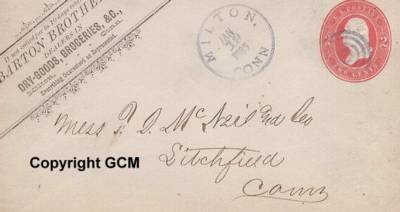 If not called for in 10 days return to
BARTON BROTHERS,
DEALERS IN
DRY-GOODS, GROCERIES, &C.,
Milton, Conn.
Everything Guaranteed as Represented.
MILTON,
JAN
CONN
U.S. POSTAGE
TWO CENTS
Mess P. D. McNeil
Litchfield
Conn
Copyright GCM